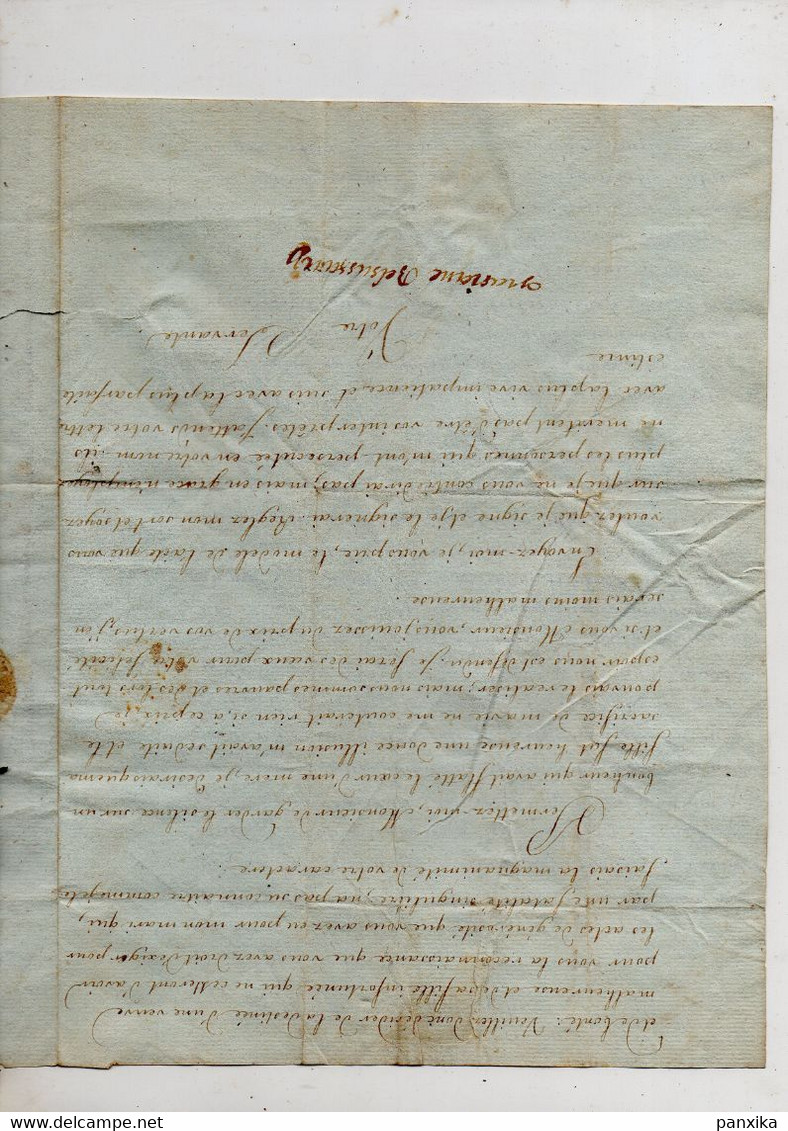 et de bonté. Veuillez donc décider de la destinée d'une veuve
malheureuse et de sa fille infortunée qui ne cesseront d'avoir
pour vous la reconnaissance que vous avez droit d'exiger pour
les actes de générosité que vous avez eu pour mon mari qui,
par une fatalité singulière, n'a pas su connaître comme je le
faisais la magnanimité de votre caractere.
Permettez-moi, Monsieur de garder le silence sur un
bonheur qui avait flatté le cœur d'une mere, je desirais que ma
fille fut heureuse une douce illusion m'avait séduite et le
sacrifice de ma vie ne me couterait rien si, a ce prix, je
pouvais le realiser; mais nous sommes pauvres et des lors tout
espoir nous est défendu, je ferai des vœux pour votre felicité
et si vous Monsieur, vous jouissez du prix de vos vertus, j'en
serais moins malheureuse.
Envoyez-moi, je vous prie, le modele de l'acte que vous
voulez que je signe et je le signerai. Reglez mon sort et soyez
sur que je ne vous contredirai pas, mais en grace n'employez
plus les personnes qui m'ont persecutée en votre nom. ils
ne meritent pas d'être vos interprêtes. J'attends votre lettre
avec la plus vive impatience, et suis avec la plus parfaite
estime
Votre Servante
Belsussarry
panxika
delcampe.net